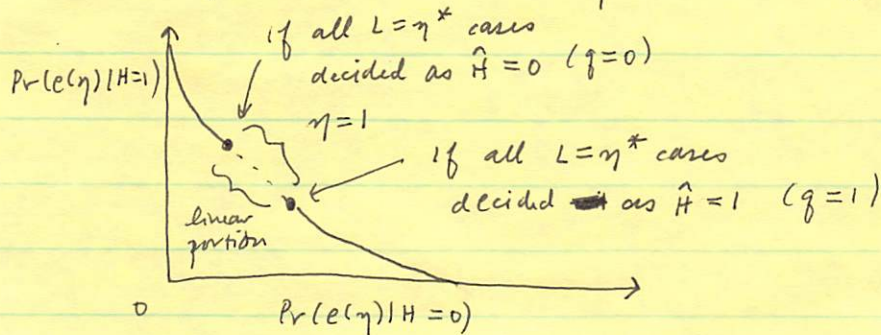 if all L=η* cases
decided as Ĥ=0 (q=0)
Pr(e(η)|H=1)
η=1
if all L=η* cases
decided as Ĥ=1 (q=1)
linear
portion
0
Pr(e(η)|H=0)